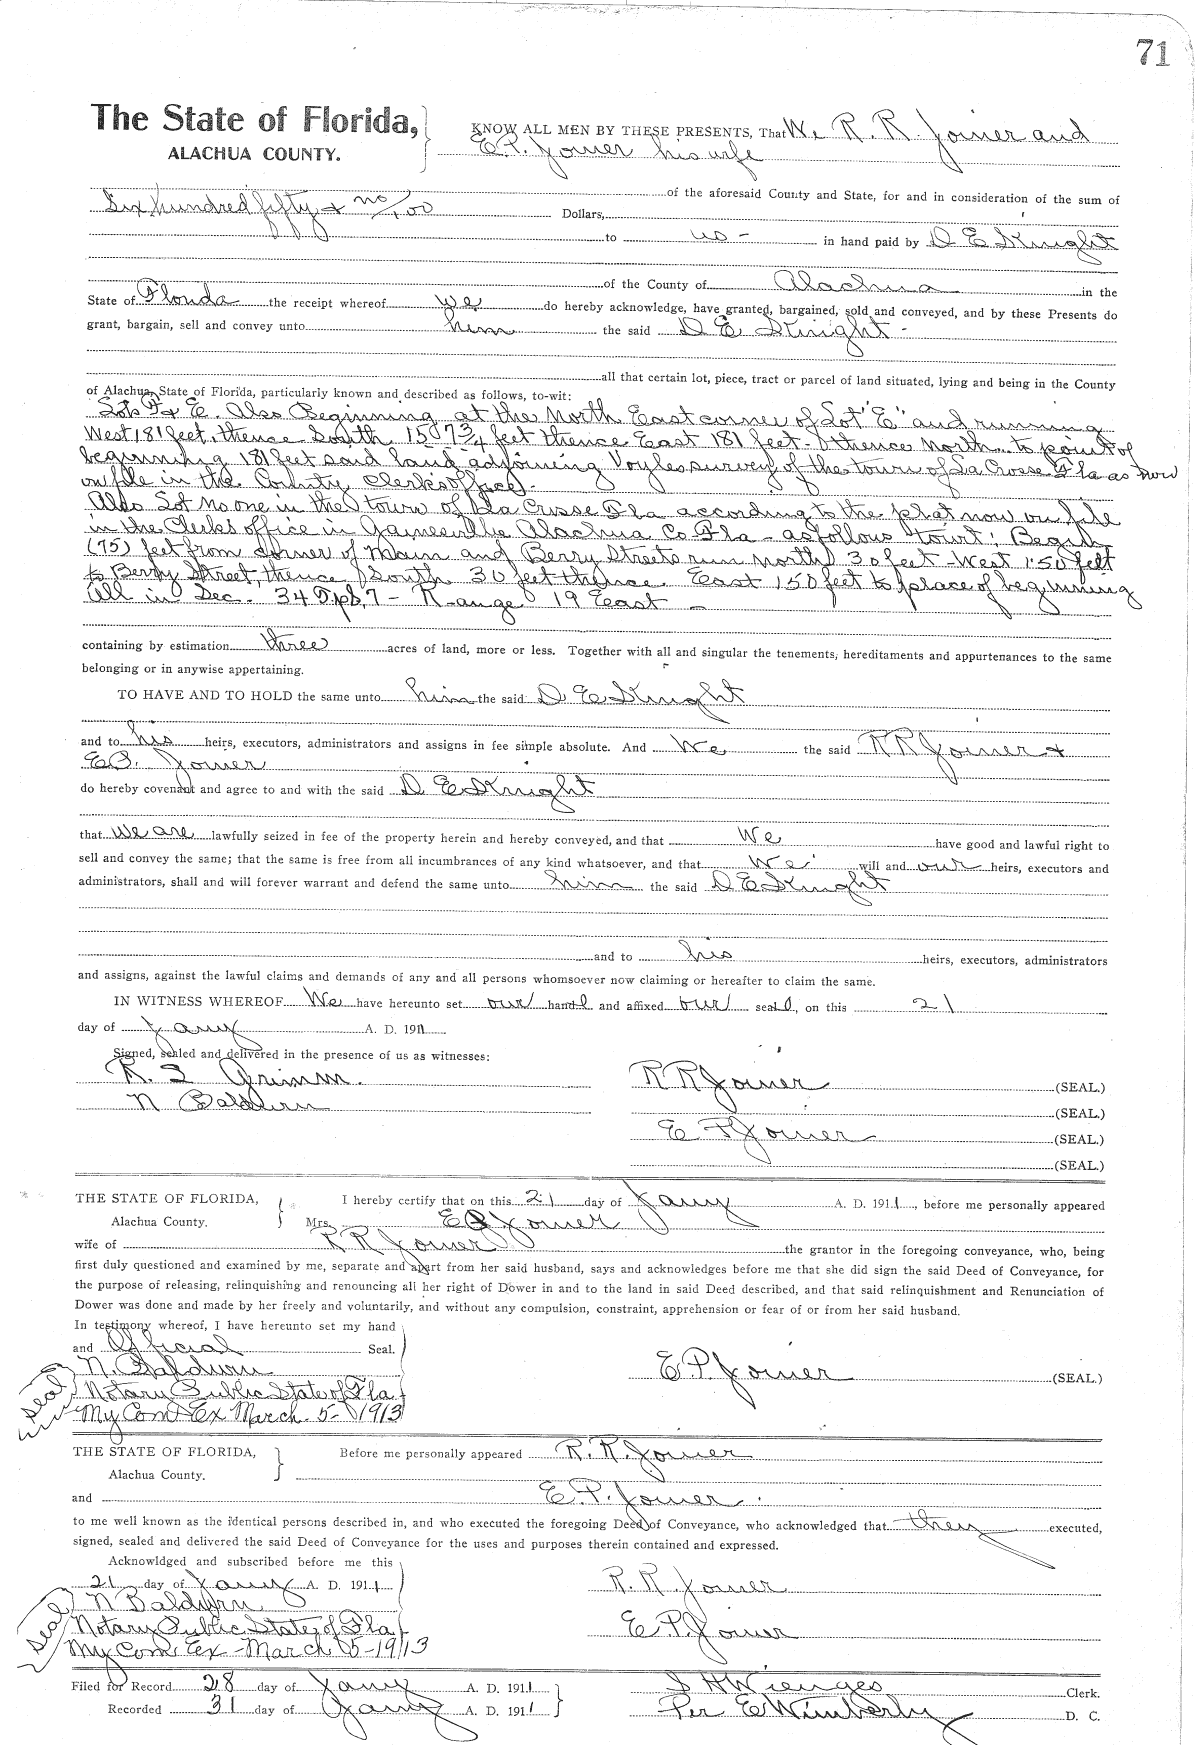 71
The State of Florida, KNOW ALL MEN BY THESE PRESENTS, That We R. R. Joiner and
ALACHUA COUNTY. E. P. Joiner his wife
of the aforesaid County and State, for and in consideration of the sum of
Six hundred fifty + no/100 Dollars,
to us - in hand paid by D E Knight
of the County of Alachua in the
State of Florida the receipt whereof we do hereby acknowledge, have granted, bargained, sold and conveyed, and by these Presents do
grant, bargain, sell and convey unto him the said D E Knight -
all that certain lot, piece, tract or parcel of land situated, lying and being in the County
of Alachua, State of Florida, particularly known and described as follows, to-wit:
Lots & E. Also Beginning at the North East corner of Lot "E" and running
West 181 feet, thence South feet thence East 181 feet - thence North to point of
beginning 181 feet said land adjoining Voyles survey of the town of La Crosse Fla as now
on file in the County Clerks office. -
Also Lot No one in the town of La Crosse Fla according to the plat now on file
in the Clerks office in Gainesville Alachua Co Fla - as follows Towit: Begin
(75) feet from corner of Main and Berry Streets run north 30 feet - West 150 feet
to Berry Street, thence South 30 feet thence East 150 feet to place of beginning
All in Sec. 34 Tp 7 - Range 19 East -
containing by estimation three acres of land, more or less. Together with all and singular the tenements, hereditaments and appurtenances to the same
belonging or in anywise appertaining.
TO HAVE AND TO HOLD the same unto him the said D E Knight
and to his heirs, executors, administrators and assigns in fee simple absolute. And We the said R R Joiner +
E P. Joiner
do hereby covenant and agree to and with the said D E Knight
that we are lawfully seized in fee of the property herein and hereby conveyed, and that We have good and lawful right to
sell and convey the same; that the same is free from all incumbrances of any kind whatsoever, and that We will and our heirs, executors and
administrators, shall and will forever warrant and defend the same unto him the said D E Knight
and to his heirs, executors, administrators
and assigns, against the lawful claims and demands of any and all persons whomsoever now claiming or hereafter to claim the same.
IN WITNESS WHEREOF We have hereunto set our hand and affixed our seal, on this 21
day of Jany A. D. 1911
Signed, sealed and delivered in the presence of us as witnesses:
R. Grimm. R R Joiner (SEAL.)
N Baldwin (SEAL.)
E P Joiner (SEAL.)
(SEAL.)
THE STATE OF FLORIDA, I hereby certify that on this 21 day of Jany A. D. 1911, before me personally appeared
Alachua County. Mrs. E P Joiner
wife of R R Joiner the grantor in the foregoing conveyance, who, being
first duly questioned and examined by me, separate and apart from her said husband, says and acknowledges before me that she did sign the said Deed of Conveyance, for
the purpose of releasing, relinquishing and renouncing all her right of Dower in and to the land in said Deed described, and that said relinquishment and Renunciation of
Dower was done and made by her freely and voluntarily, and without any compulsion, constraint, apprehension or fear of or from her said husband.
In testimony whereof, I have hereunto set my hand
and Official Seal. E. P. Joiner (SEAL.)
N. Baldwin
Seal Notary Public State of Fla
My Com Ex March. 5 - 1913
THE STATE OF FLORIDA, Before me personally appeared R. R. Joiner
Alachua County.
and E. P. Joiner.
to me well known as the identical persons described in, and who executed the foregoing Deed of Conveyance, who acknowledged that they executed,
signed, sealed and delivered the said Deed of Conveyance for the uses and purposes therein contained and expressed.
Acknowldged and subscribed before me this
21 day of Jany A. D. 1911 R. R. Joiner
N Baldwin
Seal Notary Public State of Fla E. P. Joiner
My Com Ex - March 5 - 1913
Filed for Record 28 day of Jany A. D. 1911 S H Wienges Clerk.
Recorded 31 day of Jany A. D. 1911 Per E Wimberly D. C.